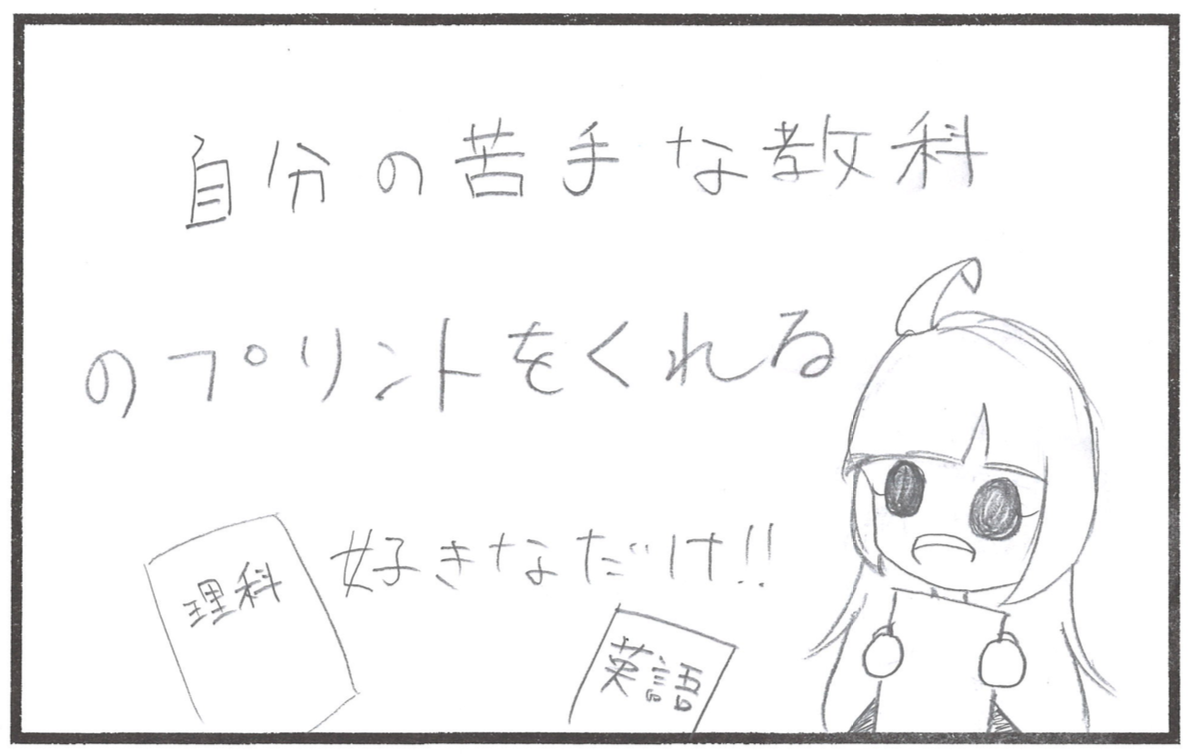 自分の苦手な教科
のプリントをくれる
好きなだけ!!
理科
英語